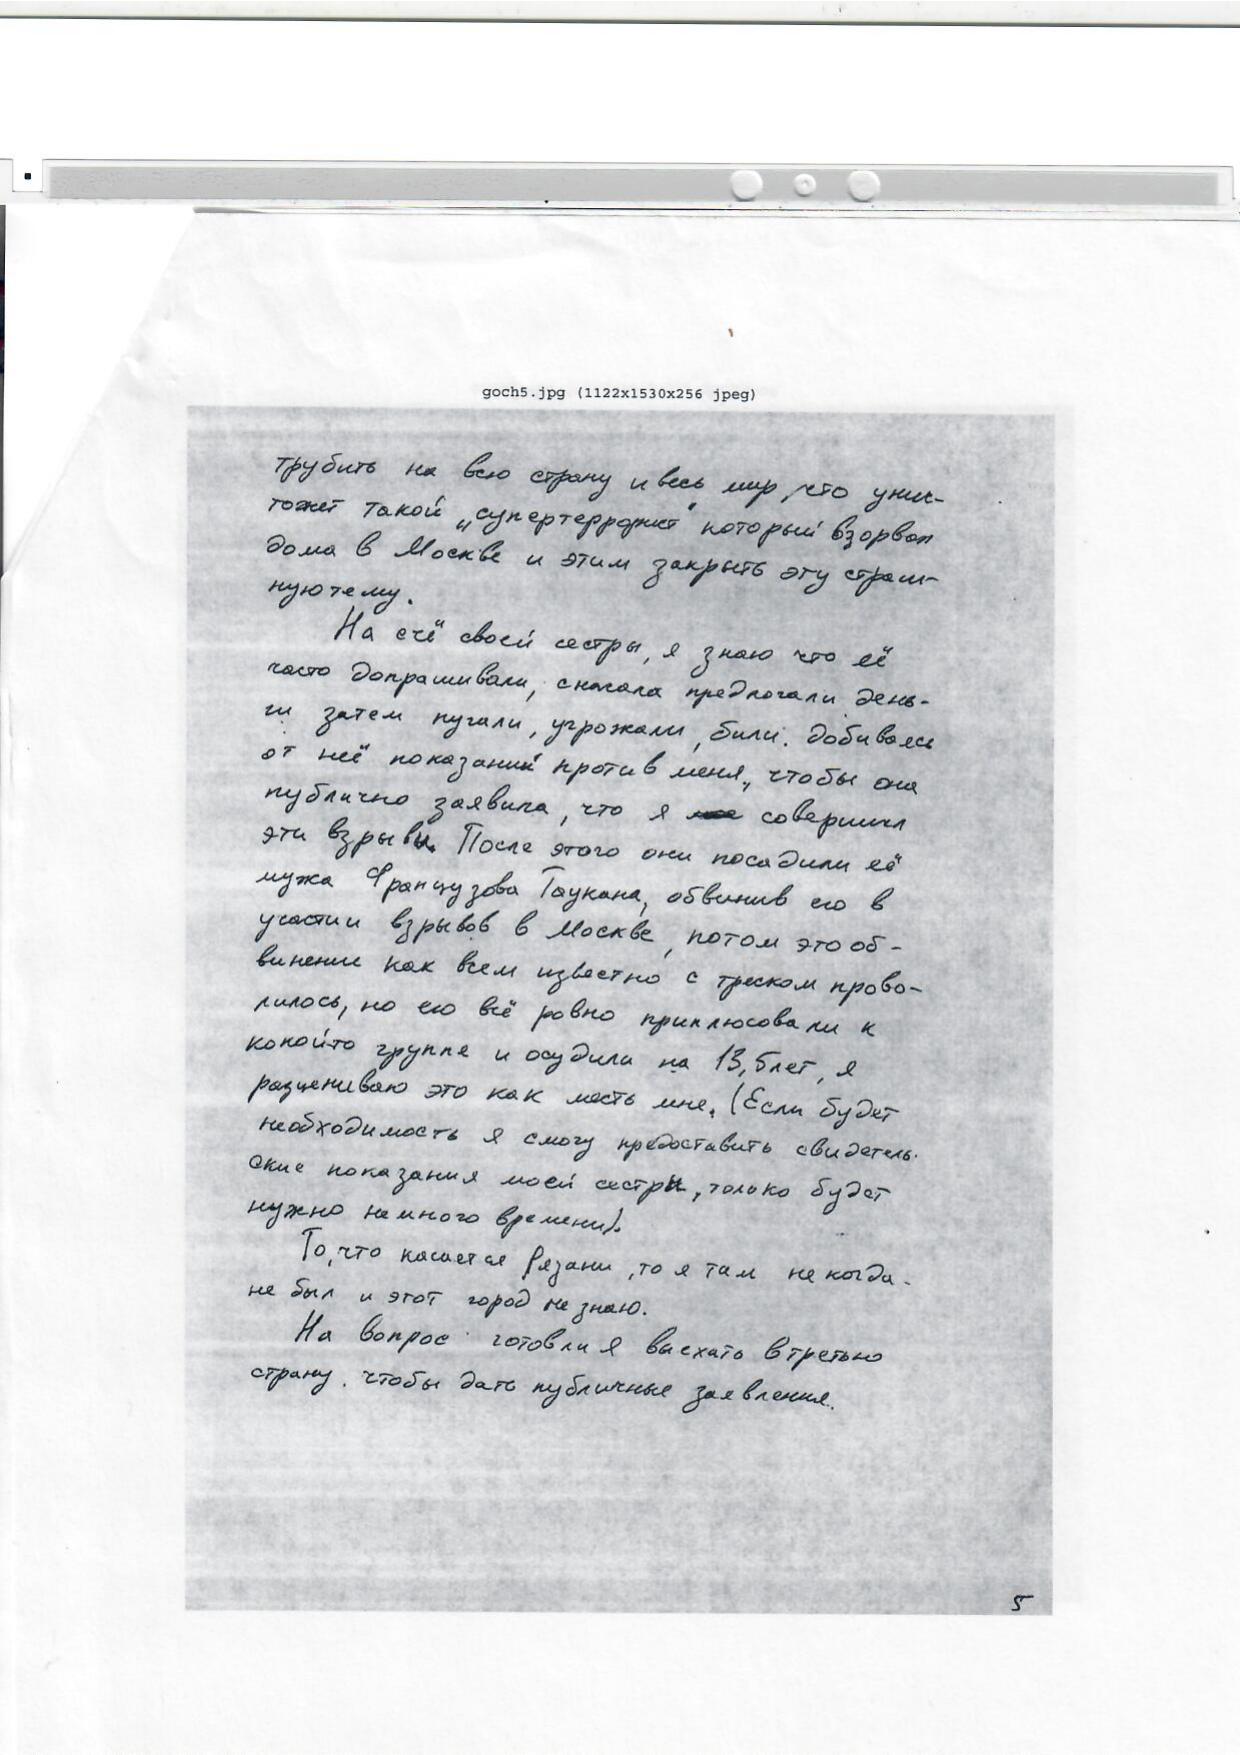 goch5.jpg (1122x1530x256 jpeg)
трубить на всю страну и весь мир, что унич-
тожет такой „супертеррорист" который взорвал
дома в Москве и этим закрыть эту страш-
ную тему.
На счё своей сестры, я знаю что её
часто допрашивали, сначала предлогали день-
ги затем пугали, угрожали, били. добиваясь
от неё показаний против меня, чтобы она
публично заявила, что я совершил
эти взрывы. После этого они посадили её
мужа Французова Таукана, обвинив его в
участии взрывов в Москве, потом это об-
винение как всем известно с треском прово-
лилось, но его всё ровно приплюсовали к
какой-то группе и осудили на 13,5 лет, я
расцениваю это как месть мне. (Если будет
необходимость я смогу предоставить свидетель-
ские показания моей сестры, только будет
нужно немного времени).
То, что касается Рязани, то я там не когда-
не был и этот город не знаю.
На вопрос готов ли я выехать в третью
страну. чтобы дать публичные заявления.
5